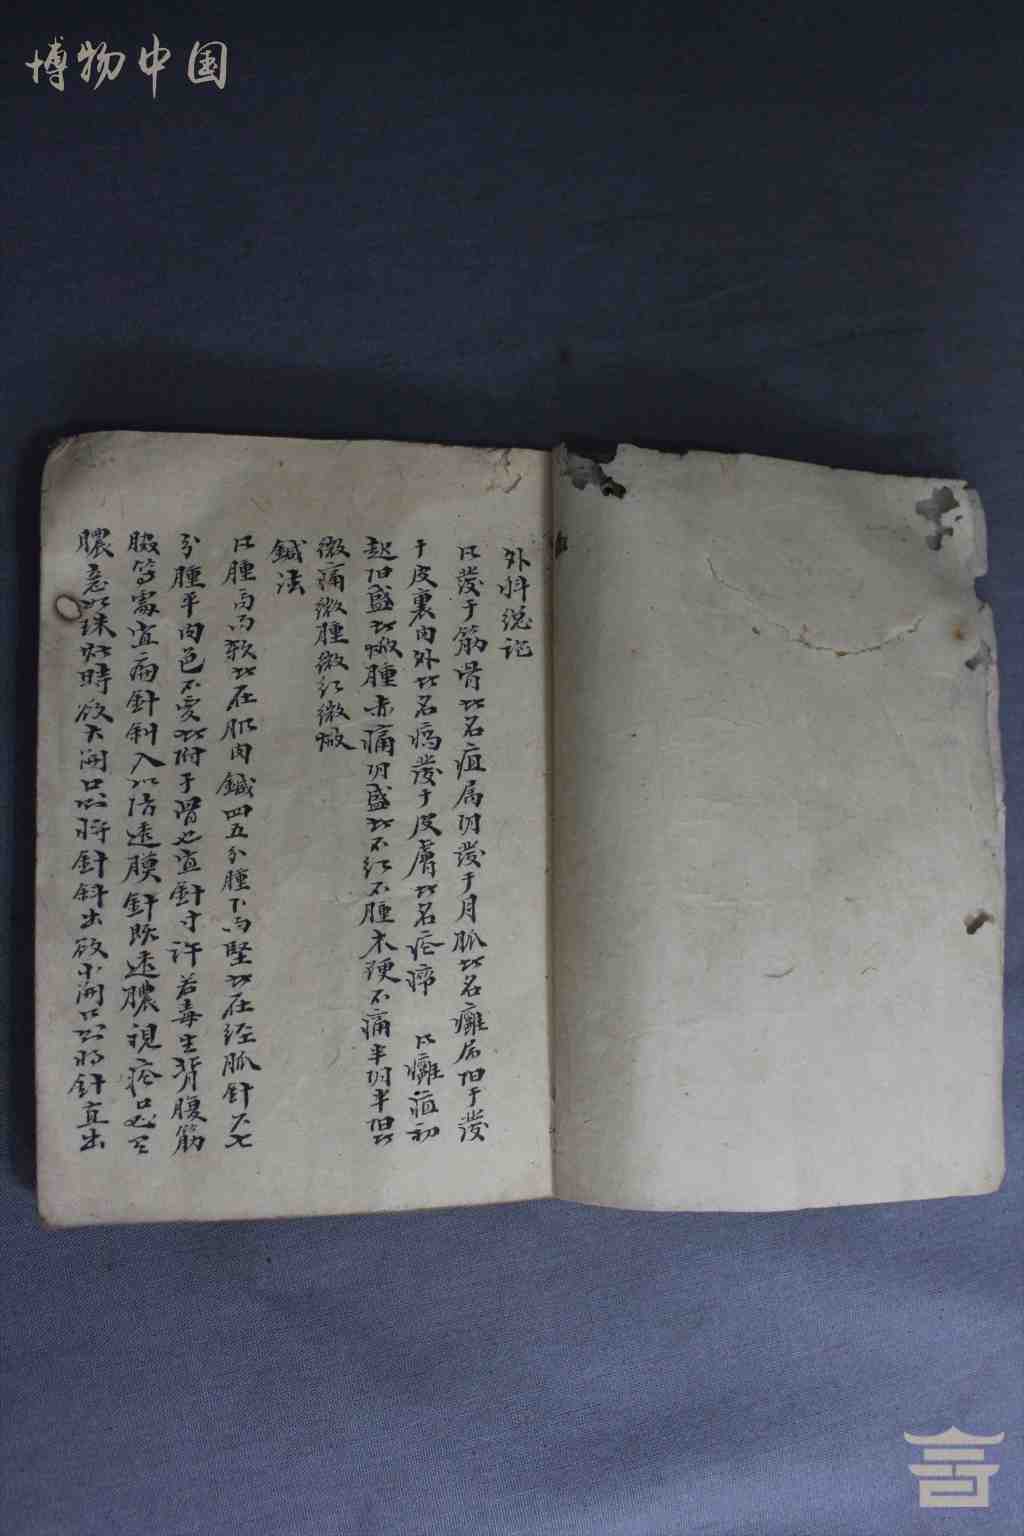 博物中国
外科總論
凡發于筋骨者名疽屬阴發于肉脈者名癰屬阳于發
于皮裏肉外者名瘍發于皮膚者名瘡癤 凡癰疽初
起阳盛者焮腫赤痛阴盛者不红不腫木硬不痛半阴半阳者
微痛微腫微红微焮
鍼法
凡腫高而软者在肌肉鍼四五分腫下而堅者在经脈針六七
分腫平肉色不变者附于骨也宜針寸許若毒生背腹筋
等處宜扁針斜入以防透膜針既透膿視瘡口必有
膿意如珠斯時欲大開口則将針斜出欲小開口則将針直出